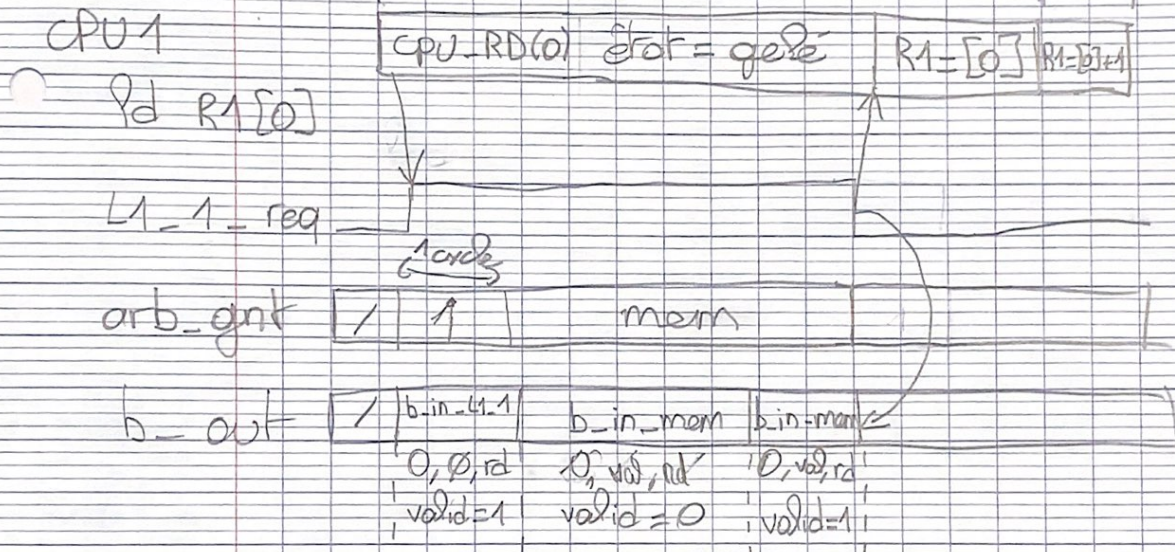 CPU1 CPU_RD(0) état = gelé R1=[0] R1=[0]+1
ld R1[0]
L1_1_req
1 cycle
arb_gnt / 1 mem
b_out / b_in_L1_1 b_in_mem b_in_mem
0,0,rd 0, val, rd 0,val,rd
valid=1 valid=0 valid=1